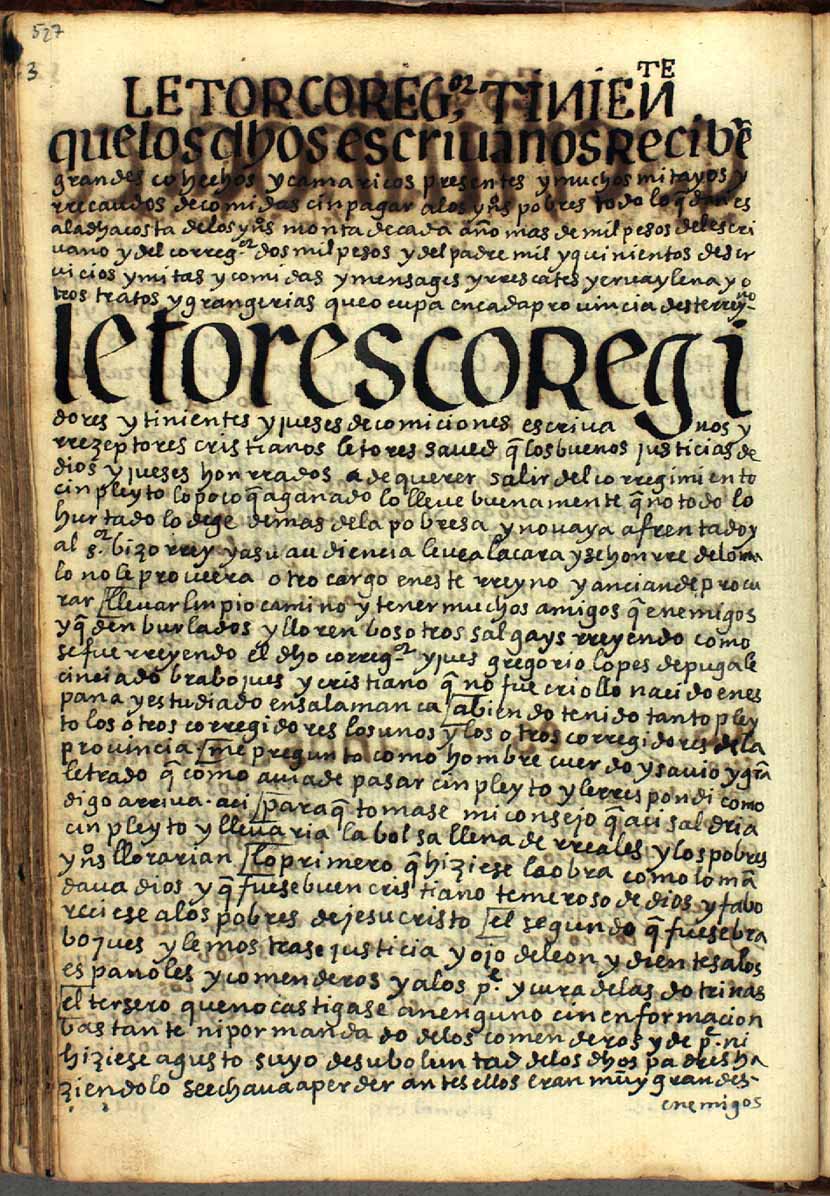 527
3
LETOR COREG.or TINIENTE
que los dhos escriuanos Reciben
grandes cohechos y camaricos presentes y muchos mitayos y
rrecaudos de comidas cin pagar a los yns pobres todo lo q dan es
a la dha costa de los yns monta de cada año mas de mil pesos del escri
uano y del correg.or dos mil pesos y del padre mil y quinientos de ser
vicios y mitas y comidas y mensages y rrescates yerua y lena y o
tros tratos y grangerias que ocupa en cada prouincia deste rreyno
letores coRegi
dores y tinientes y jueses de comiciones escriua nos y
rrezeptores cristianos letores saued q los buenos justicias de
dios y jueses honrrados a de querer salir del corregimiento
cin pleyto lo poco q a ganado lo lleue buenamente q no todo lo
hurtado lo dege demas de la pobresa y no uaya afrentado y
al s.or bizorrey y a su audiencia le uea la cara y se honrre de lo ma
lo no le proueera otro cargo en este rreyno y ancian de procu
rar lleuar linpio camino y tener muchos amigos q enemigos
y q den burlados y lloren bosotros salgays rreyendo como
se fue rreyendo el dho correg.or y jues gregorio lopes de puga le
cinciado brabo jues y cristiano q no fue criollo nacido en es
pana y estudiado en salamanca abiendo tenido tanto pley
to los otros corregidores los unos y los otros corregidores de la
prouincia me pregunto como hombre cuerdo y sauio y gra
letrado q como auia de pasar cin pleyto y le rrespondi como
digo arriua. aci para q tomase mi consejo q aci saldria
cin pleyto y lleuaria la bolsa llena de rreales y los pobres
yns llorarian lo primero q hiziese la obra como lo man
daua dios y q fuese buen cristiano temeroso de dios y fabo
reciese a los pobres de jesucristo el segundo q fuese bra
bo jues y le mostrase justicia y ojo de leon y dientes a los
espanoles y comenderos y a los p.e y cura de las dotrinas
el tersero que no castigase a nenguno cin enformacion
bastante ni por mandado de los comenderos y de p.e ni
hiziese a gusto suyo de su boluntad de los dhos padres ha
ziendolo se echaua a perder antes ellos eran muy grandes
enemigos